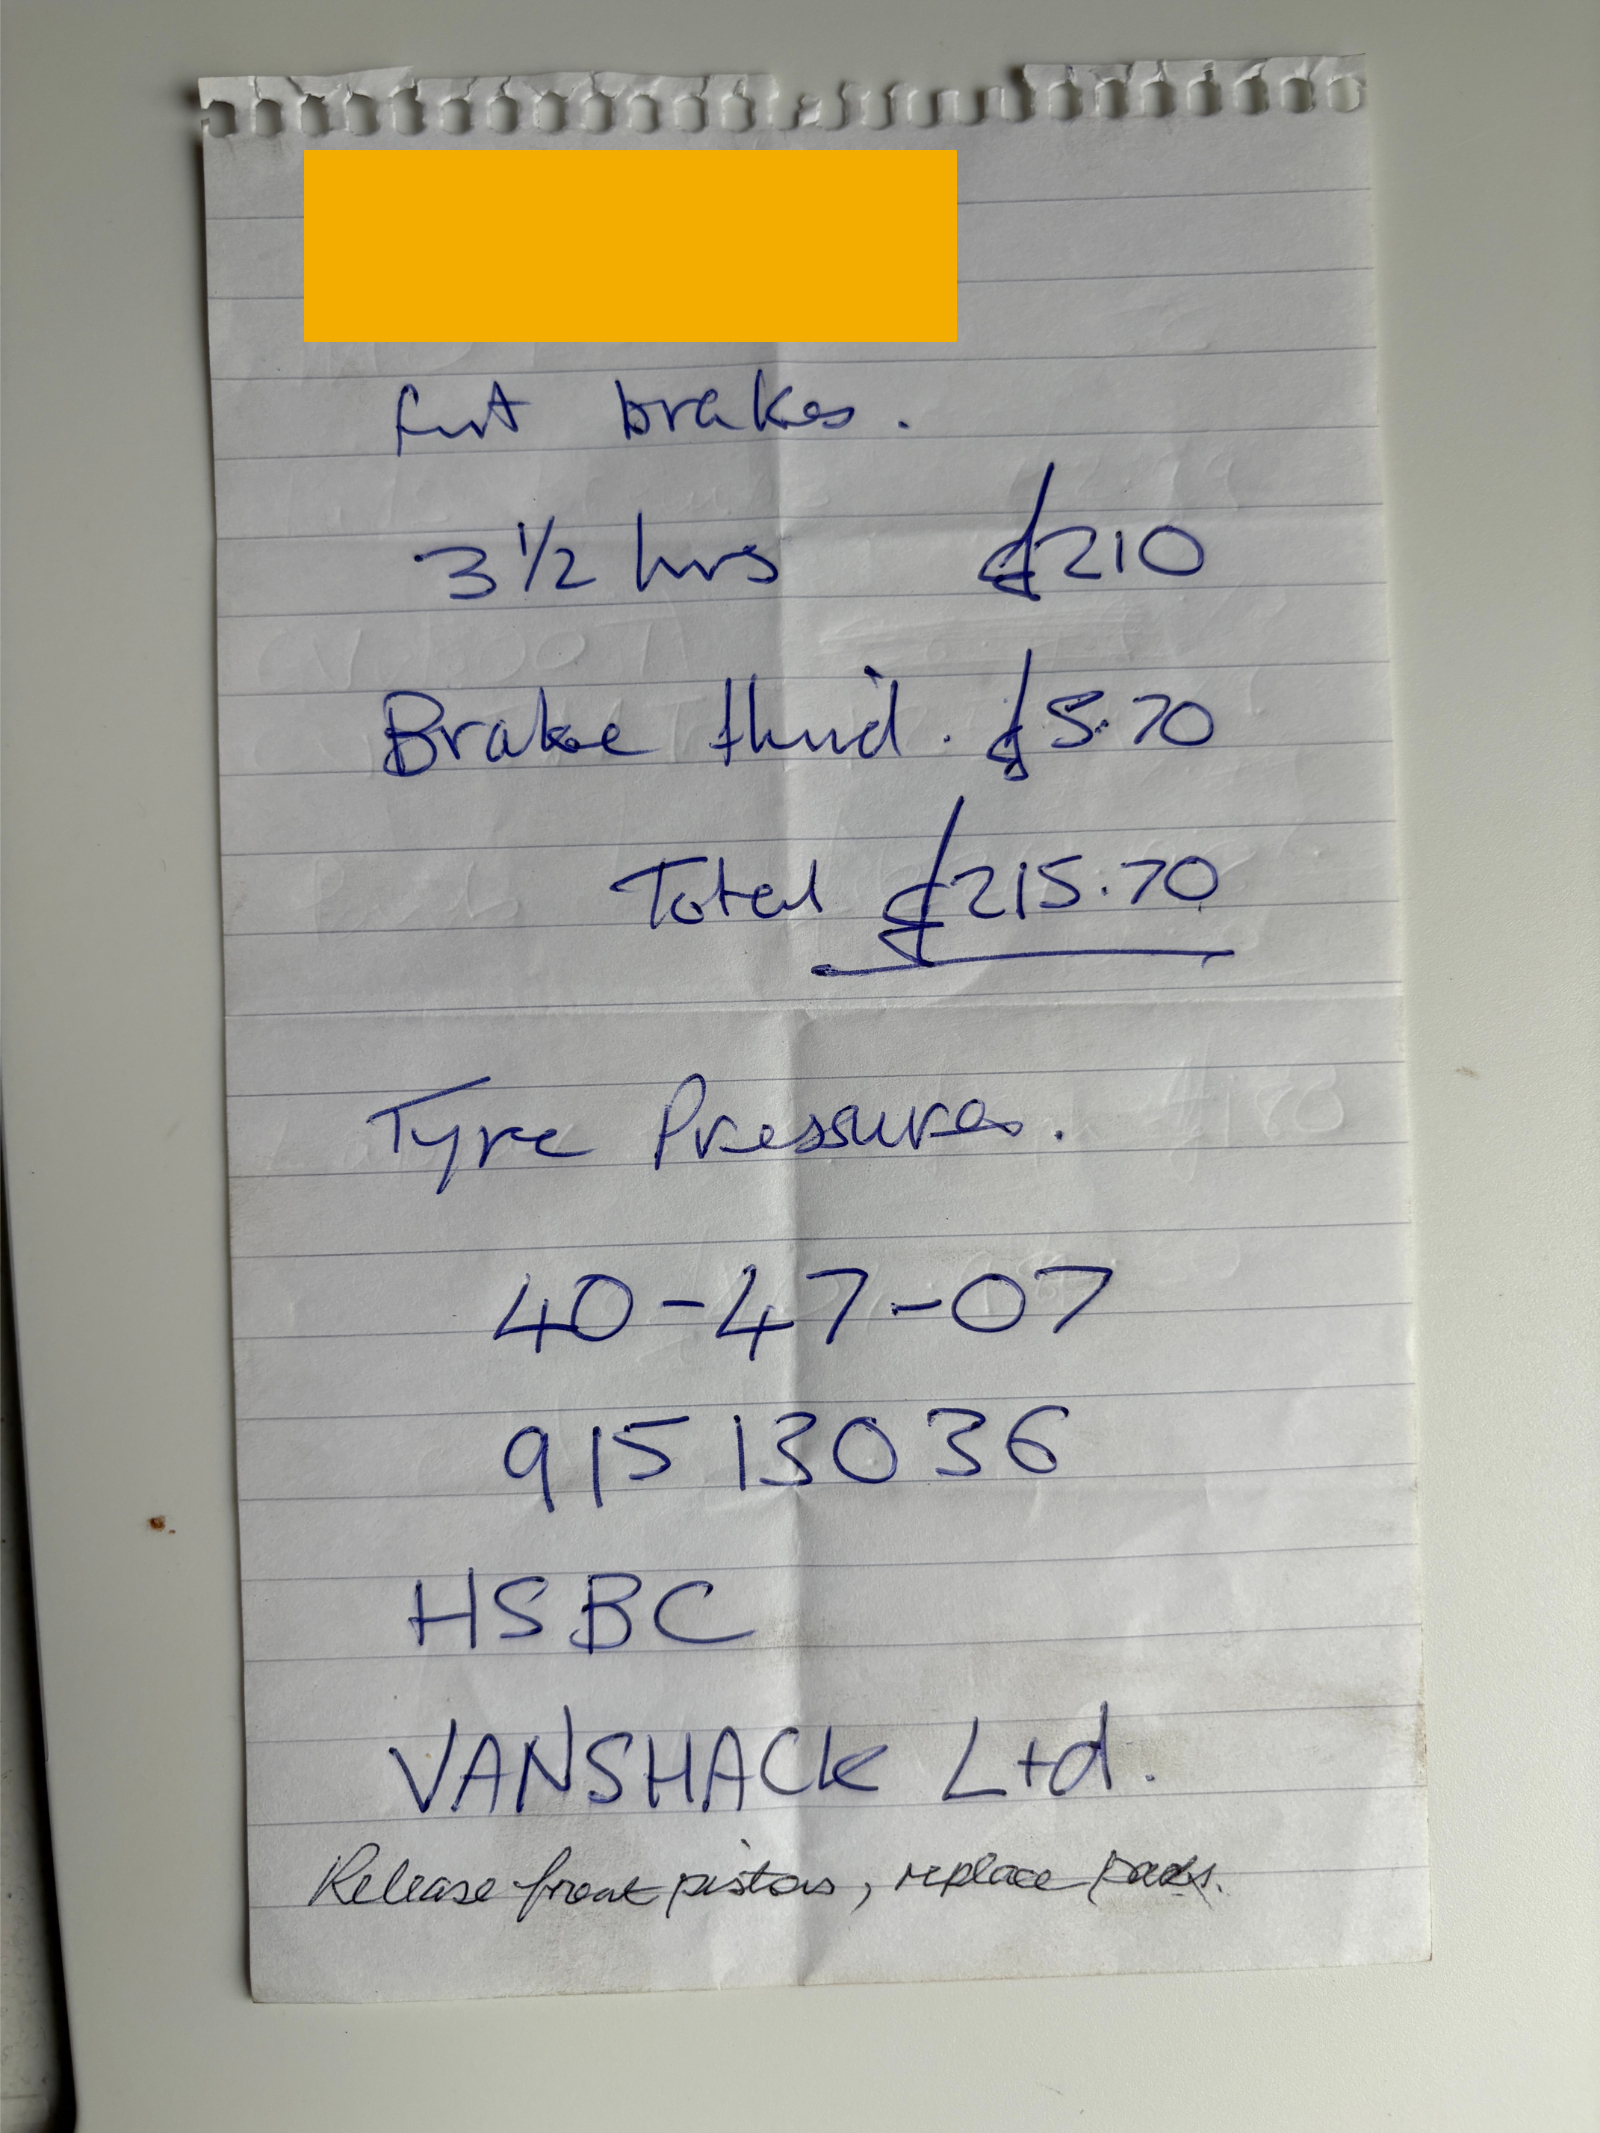 frt brakes.
3 1/2 hrs £210
Brake fluid. £5.70
Total £215.70
Tyre Pressures.
40-47-07
91513036
HSBC
VANSHACK Ltd.
Release front pistons, replace pads.